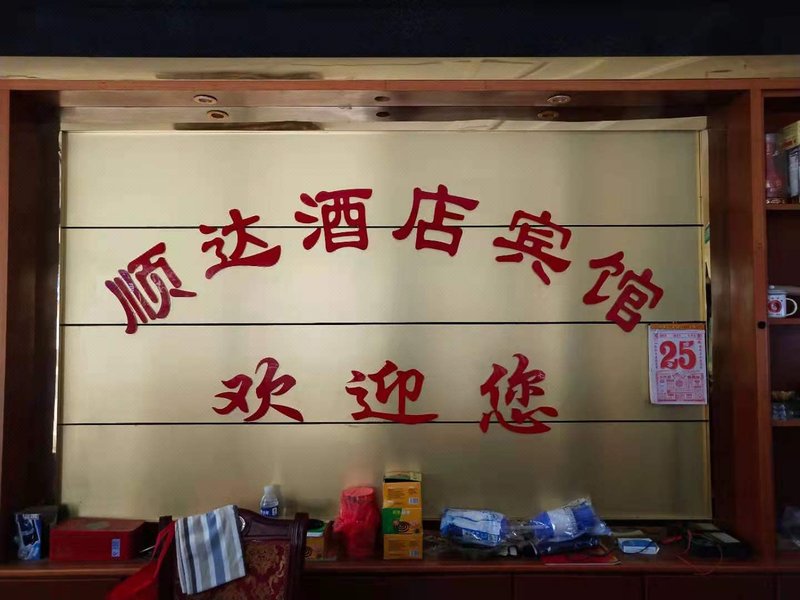 顺达酒店宾馆
欢迎您
25